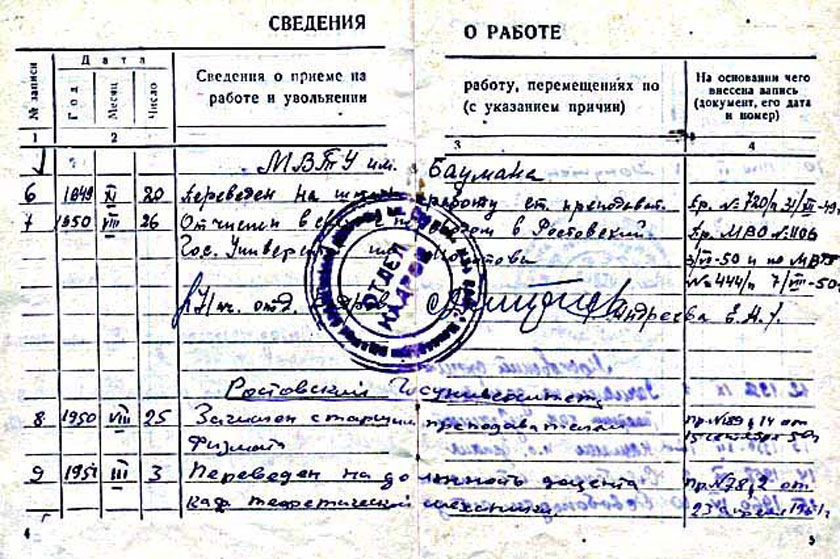 СВЕДЕНИЯ О РАБОТЕ
№ записи
Дата
Год
Месяц
Число
Сведения о приеме на работу, перемещениях по
работе и увольнении (с указанием причин)
На основании чего
внесена запись
(документ, его дата
и номер)
1 2 3 4
МВТУ им. Баумана
6 1949 XI 20 Переведен на работу ст. преподават. Пр. № 720/
7 1950 VIII 26 Отчислен в Ростовский Пр. МВО № 1106
Гос. Университет -50 и по МВТУ
№ 444/ 7/VIII-50
Нач. отд. Андреева Е.А.
ОТДЕЛ
КАДРОВ
Ростовский Госуниверситет
8 1950 VIII 25 Зачислен старшим преподавателем Пр № 189 § 14 от
Физмата 15 сентября 50г
9 1951 III 3 Переведен на должность доцента Пр № 78 § 2 от
каф. теоретической механики 23 апреля 1951г
4 5